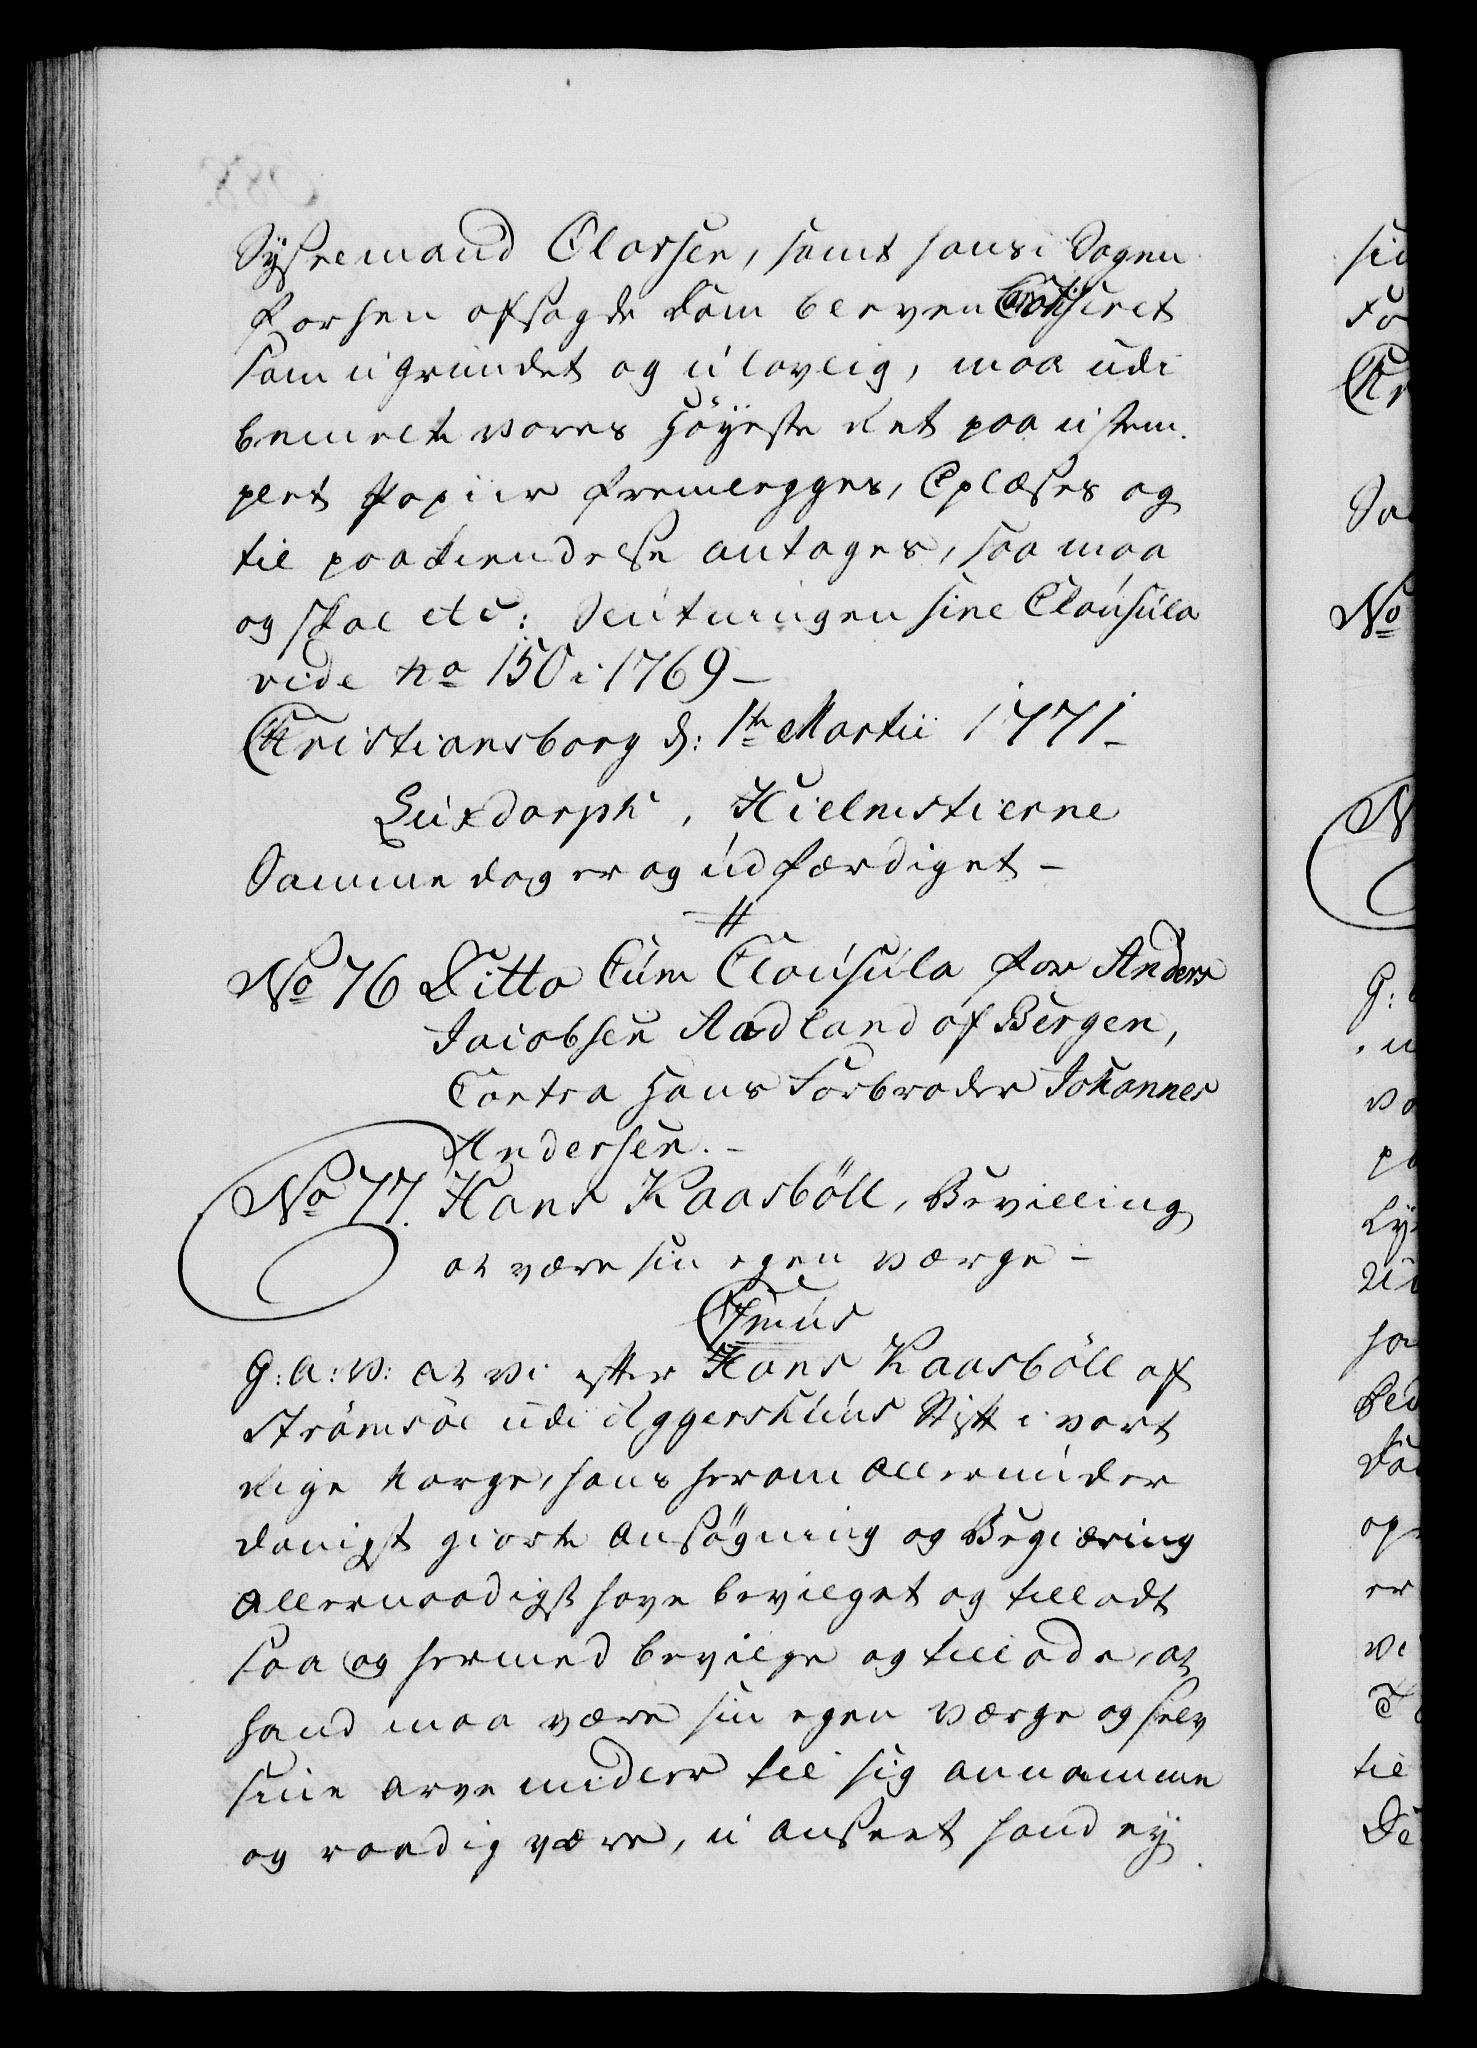 Sysremand Clasen, samt hans i Sagen
forhen afsagde Dom bleven Casseret
som ugrundet og ulovlig, maa udi
bemelte Vores Höÿeste Ret paa ustem-
plet Papiir fremlegges, Oplæses og
til paakiendelse antages, saa maa
og skal etc: Slutningen sine Clausula
vide No 150 i 1769 –
Christiansborg d: 1te Martii 1771 –
Luxdorph, Hielmstierne
Samme dag er og udfærdiget –
No 76 Ditto Cum Clausula for Anders
Jacobsen Aadland af Bergen,
Contra Hans Forbroder Johannes
Andersen. –
No 77. Hans Kaasböll, Bevilling
at være sin egen Værge –
G: A: V: at Vi efter Hans Kaasböll af
Strömsöe udi Aggershuus Stift i vort
Rige Norge, hans herom Allerunder
danigst giorte Ansögning og Begiæring
Allernaadigst have bevilget og tilladt
saa og hermed bevilge og tillade, at
hand maa være sin egen Værge og selv
sine Arve midler til sig annamme
og raadig være, u anseet hand ey